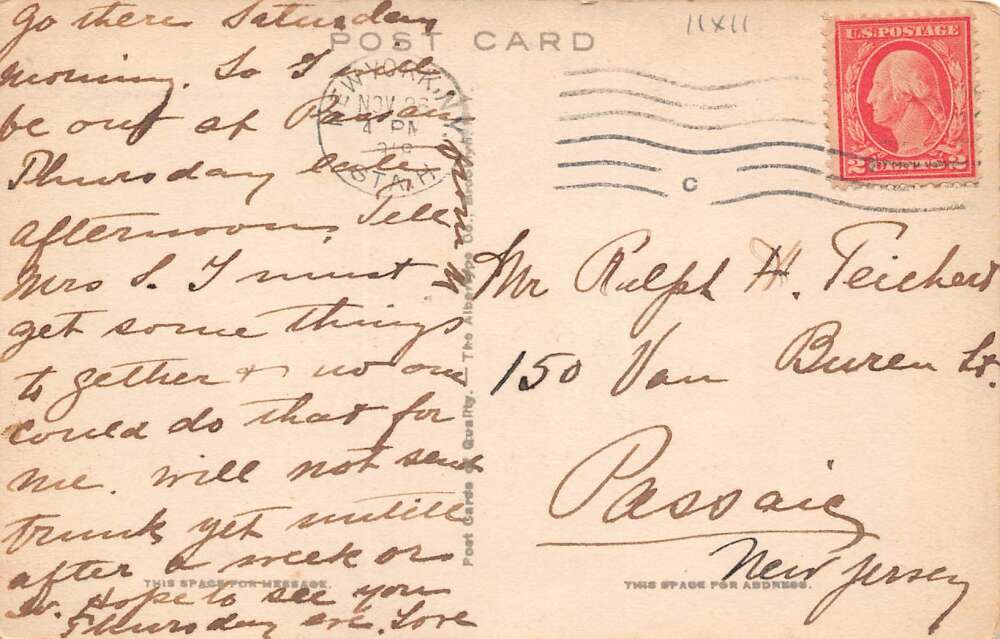 11x11
POST CARD
U.S. POSTAGE
NEW YORK, N.Y.
NOV 26
4 PM
STA. H
C
go there Saturday
morning. So I will
be out at Passaic
Thursday late
afternoon. Tell
Mrs S. I must
get some things
to gether & no one
could do that for
me. will not send
trunk yet untill
after a week or
so. Hope to see you
Thursday eve. Love
from M
Mr Ralph H. Teichert
150 Van Buren St.
Passaic
New Jersey
Post Cards of Quality. — The Albertype Co.,
THIS SPACE FOR MESSAGE.
THIS SPACE FOR ADDRESS.